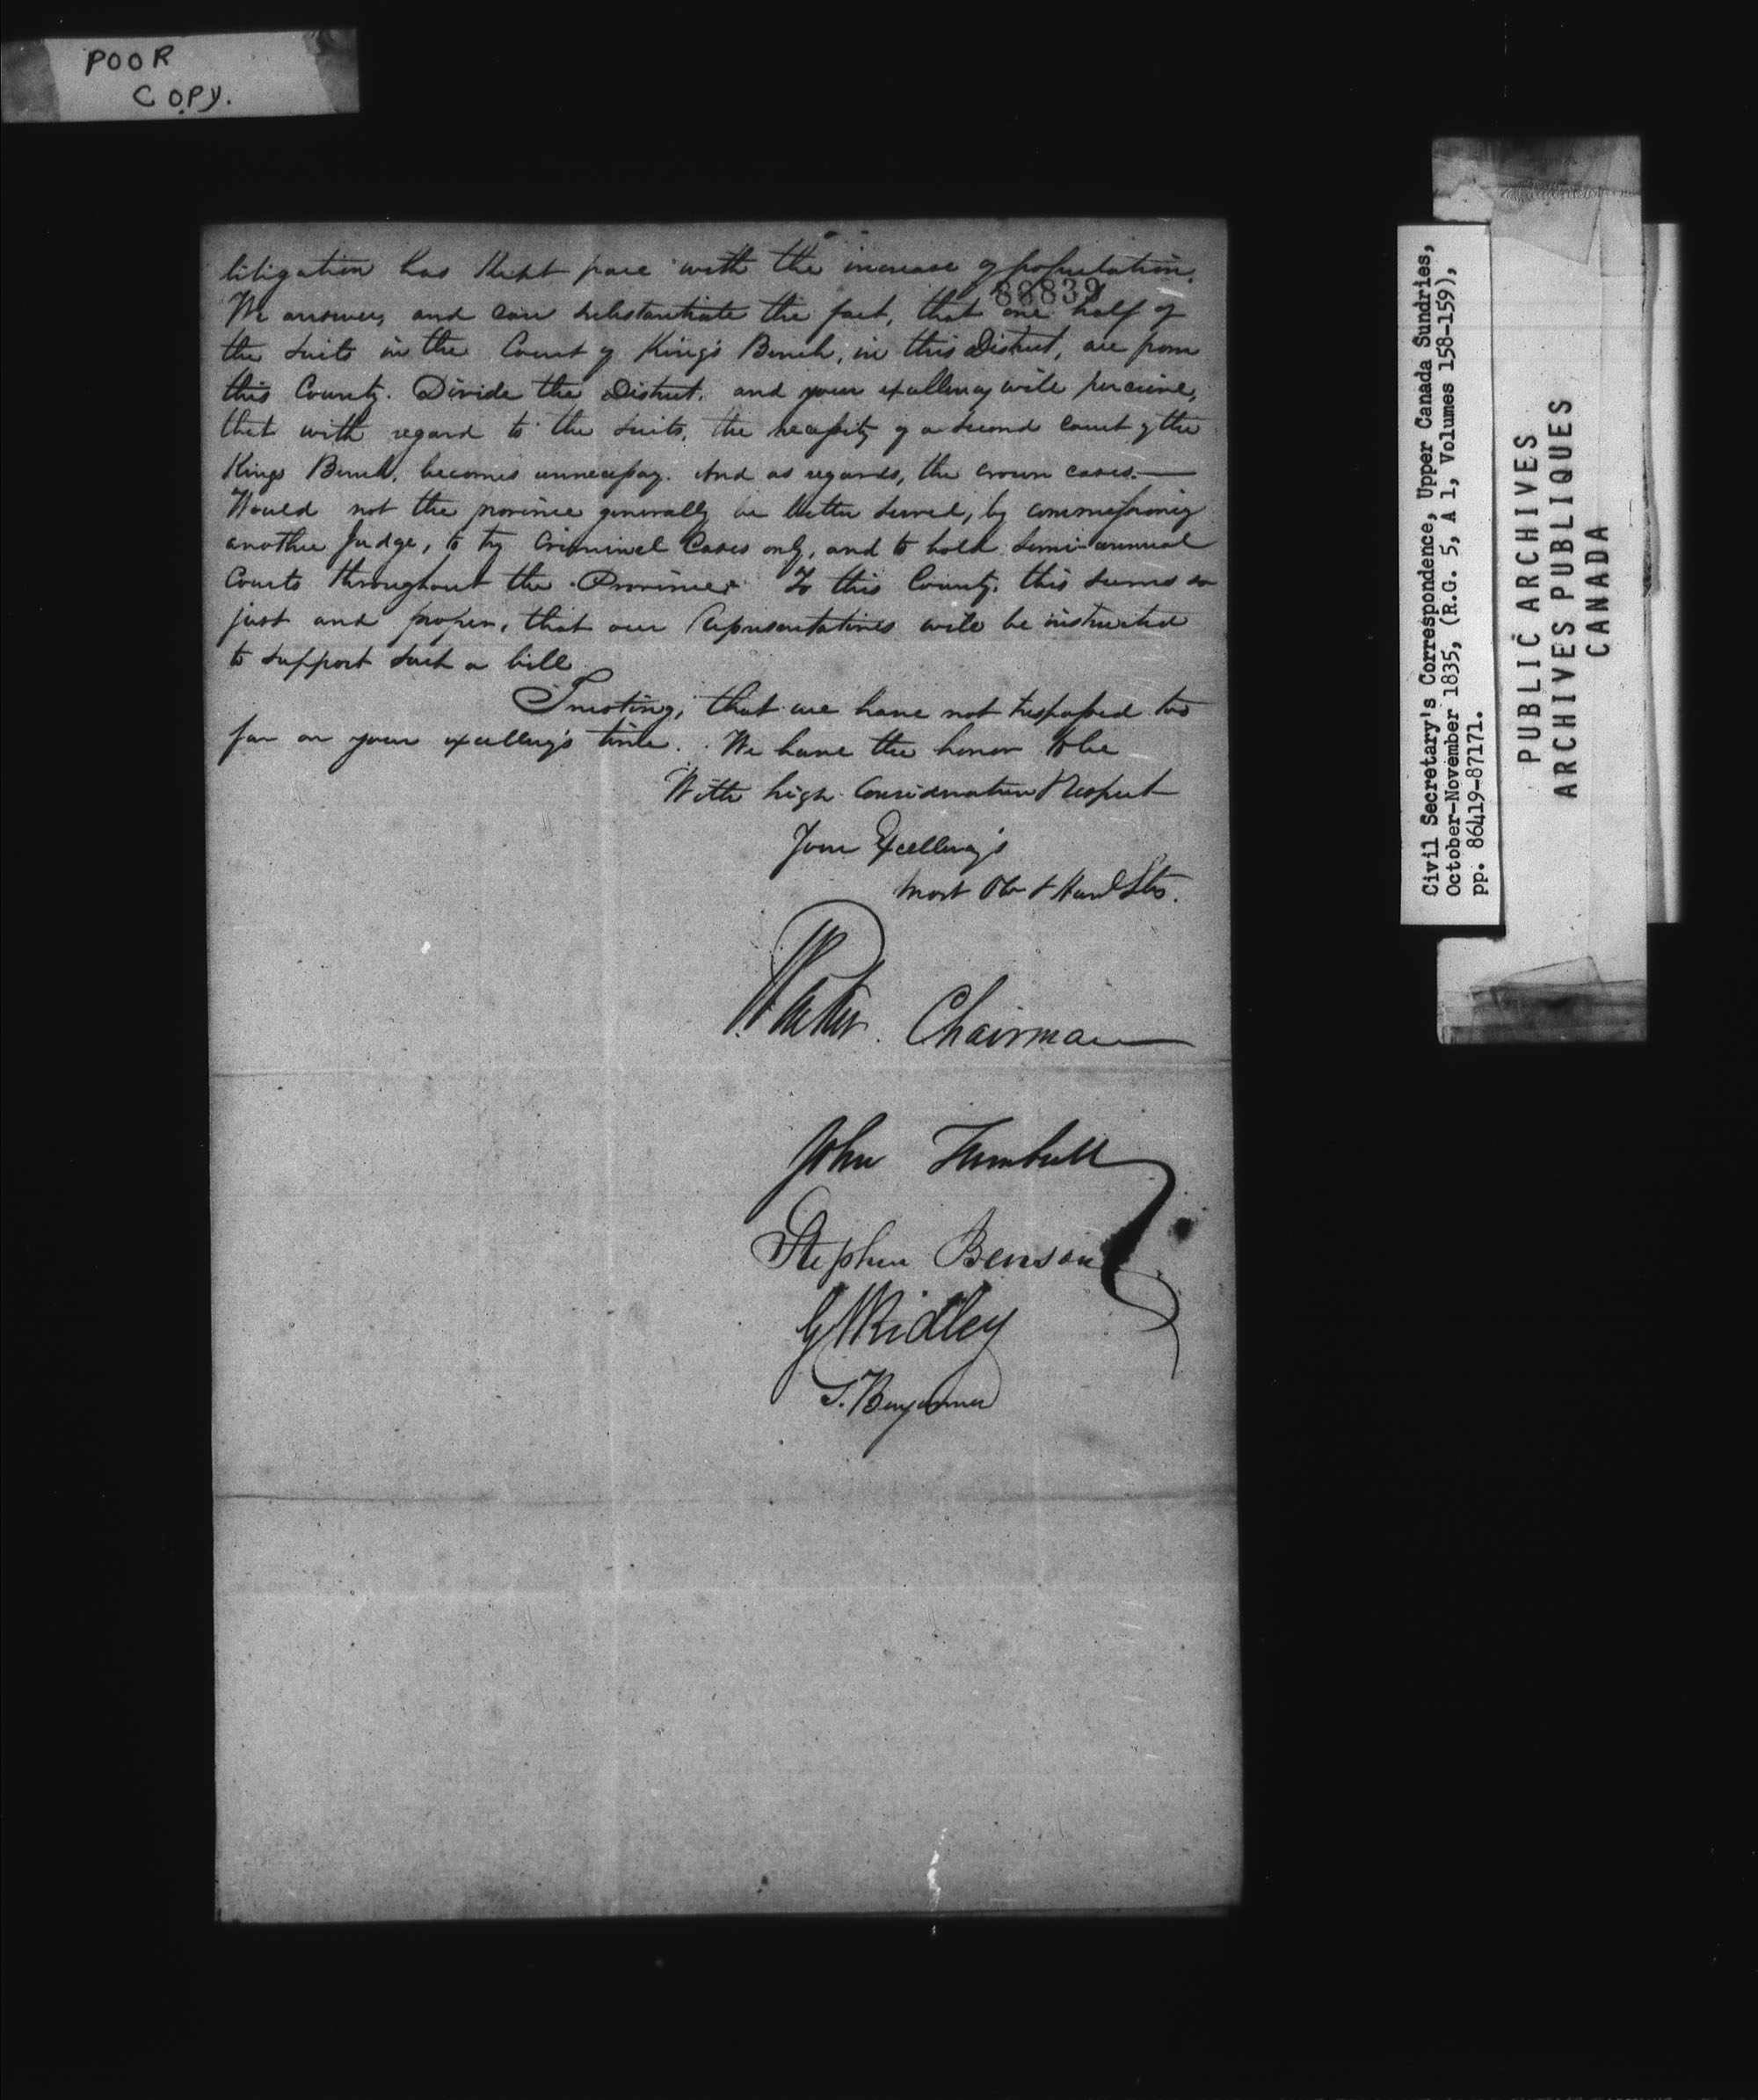 POOR
COPY.
litigation has kept pace with the increase of population.
88839
We answer, and can substantiate the fact, that one half of
the suits in the Court of King's Bench, in this District, are from
this County. Divide the District, and your excellency will perceive,
that with regard to the suits, the necessity of a second court of the
Kings Bench, becomes unnecessary. And as regards, the crown cases.—
Would not the province generally be better served, by commissioning
another Judge, to try Criminal Cases only, and to hold semi-annual
Courts throughout the Province. To this County, this seems so
just and proper, that our Representatives will be instructed
to support such a bill
Trusting, that we have not trespassed too
far on your excellency's time. We have the honor to be
With high Consideration & Respect
Your Excellency's
most Obt & Hum Sts.
Chairman
John Turnbull
Stephen Benson
G Ridley
G. Benjamin
Civil Secretary's Correspondence, Upper Canada Sundries,
October-November 1835, (R.G. 5, A 1, Volumes 158-159),
pp. 86419-87171.
PUBLIC ARCHIVES
ARCHIVES PUBLIQUES
CANADA